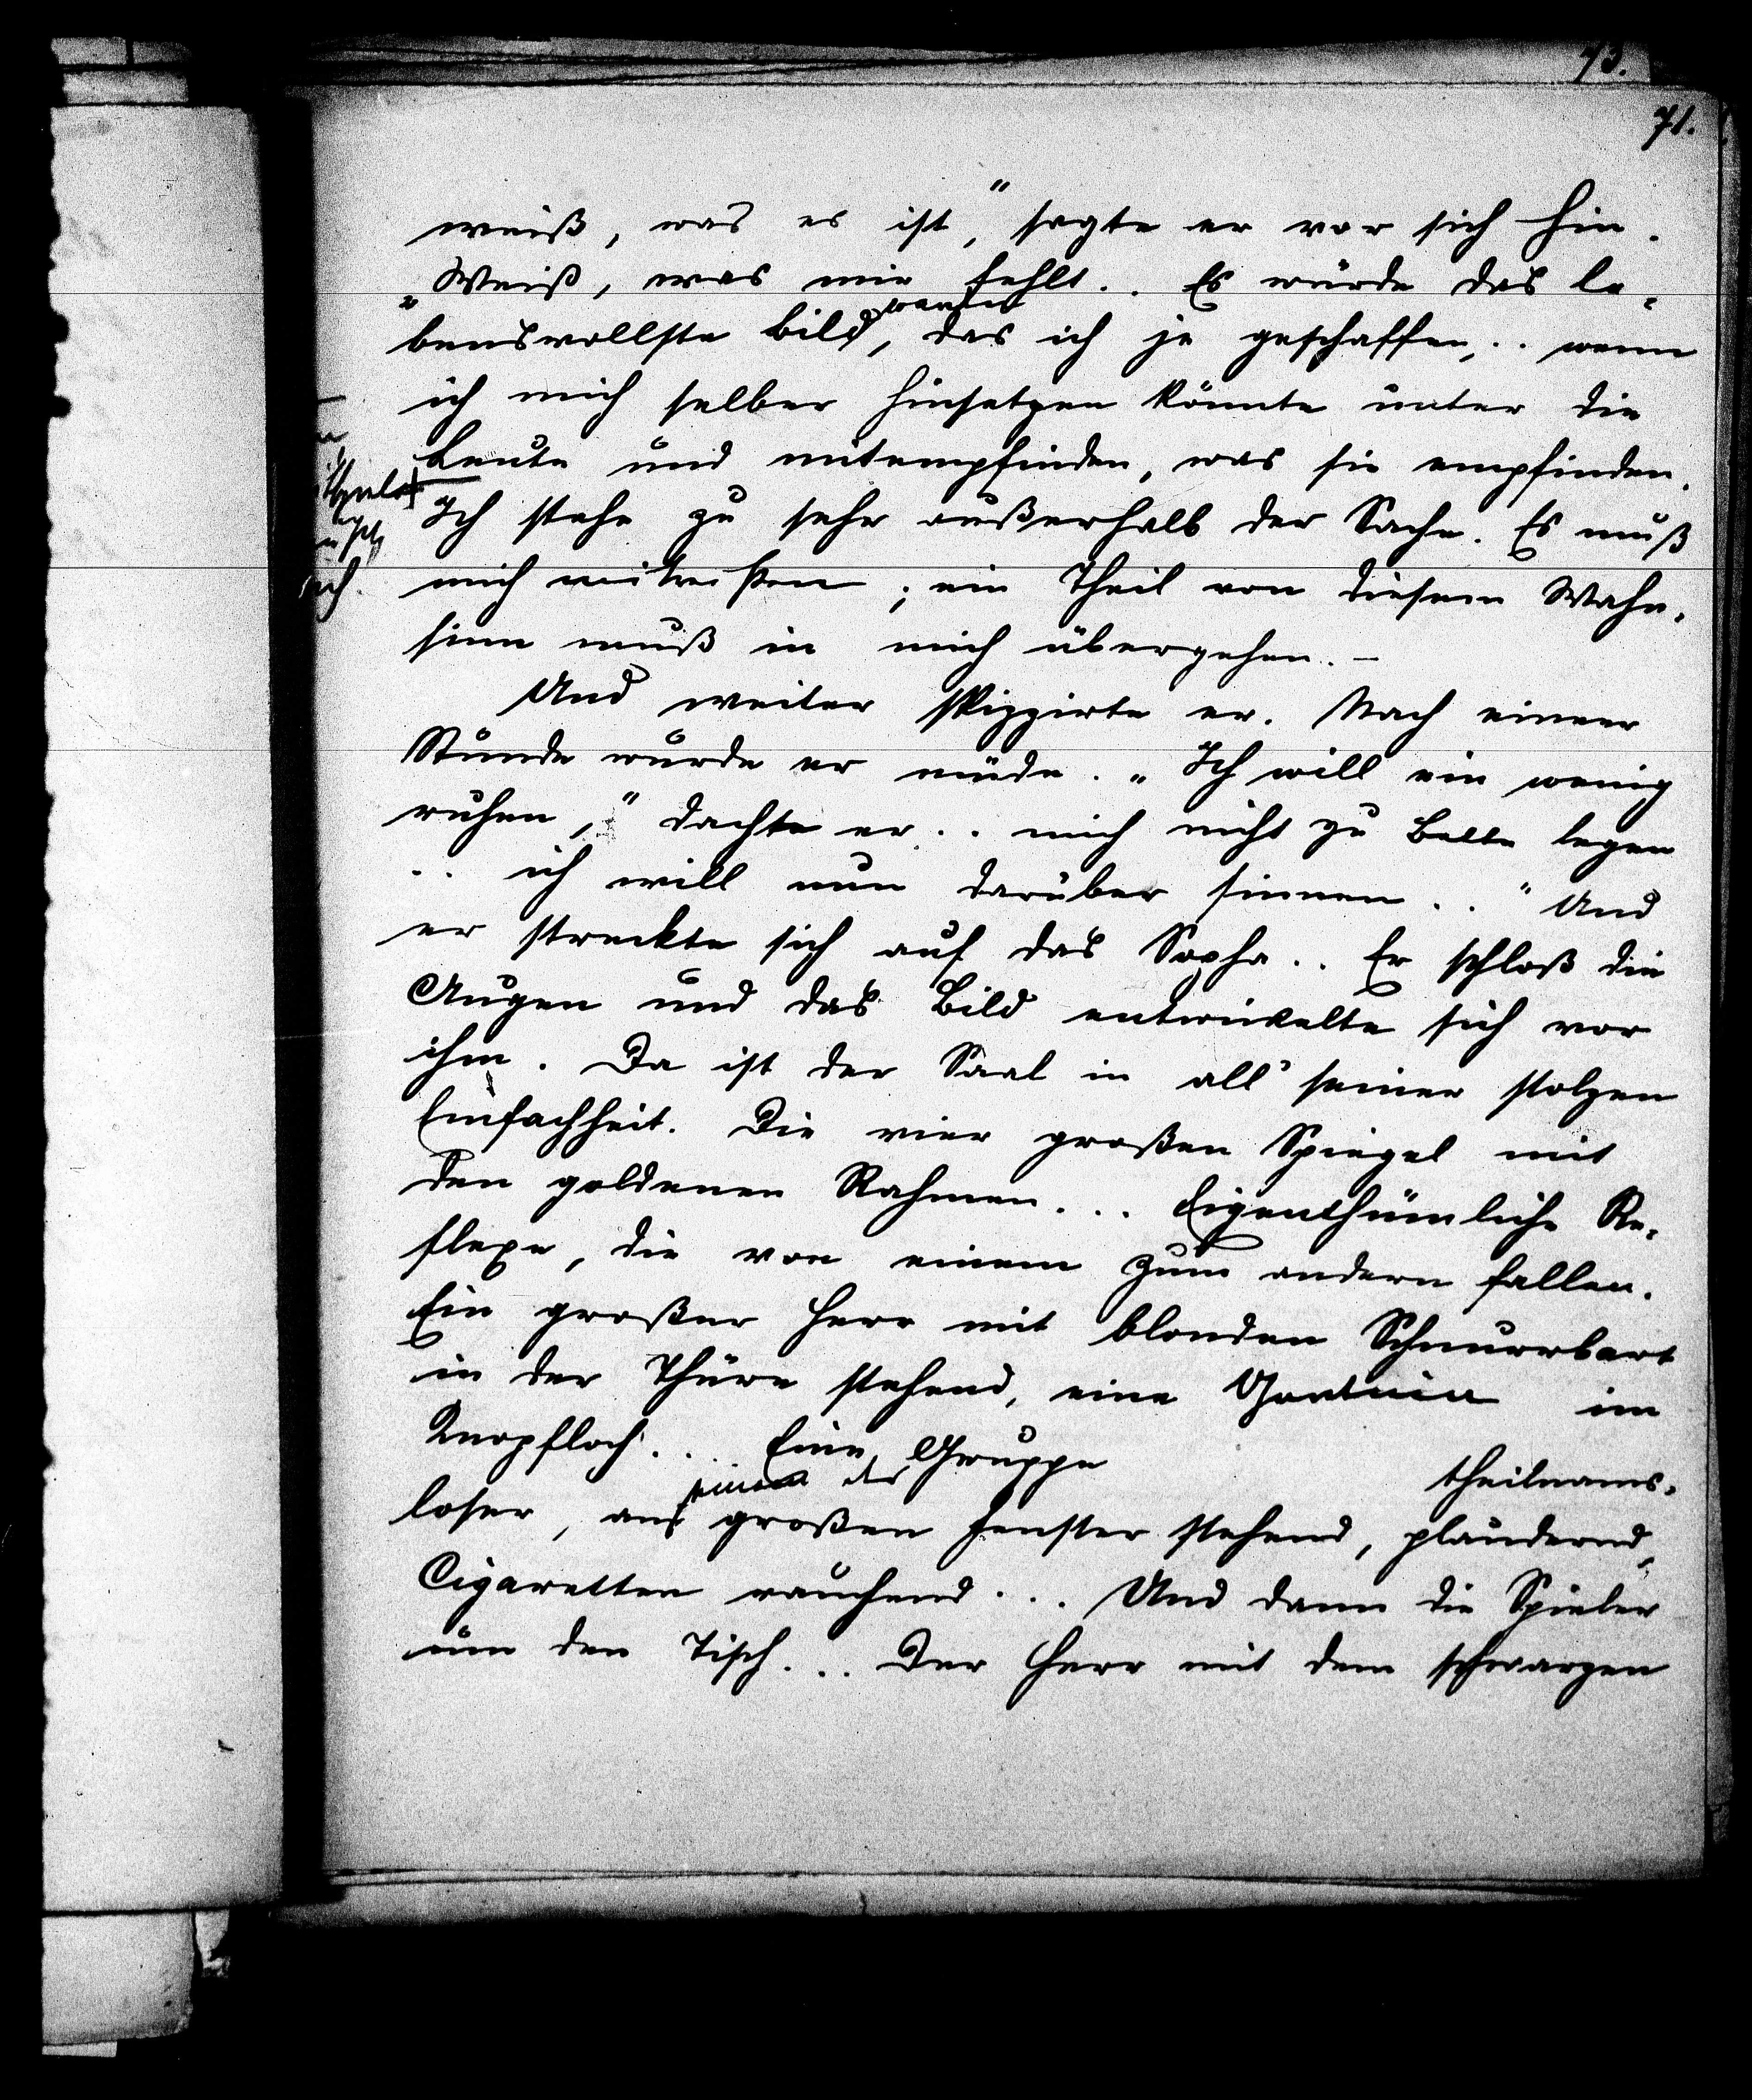 73.
71.
weiß, was es ist,“ sagte er vor sich hin.
„Weiß, was mir fehlt.. Es würde das le-
werden
bensvollste Bild, das ich je geschaffen,.. wenn
ich mich selber hinsetzen könnte unter die
Leute und mitempfinden, was sie empfinden.
Ich stehe zu sehr außerhalb der Sache. Es muß
mich mitreißen; ein Theil von diesem Wahn-
sinn muß in mich übergehen. –
Und weiter skizzirte er. Nach einer
Stunde wurde er müde. „Ich will ein wenig
ruhen,“ dachte er.. mich nicht zu Bette legen
.. ich will nun darüber sinnen..“ Und
er streckte sich auf das Sopha.. Er schloß die
Augen und das Bild entwickelte sich vor
ihm. Da ist der Saal in all’ seiner stolzen
Einfachheit. Die vier großen Spiegel mit
den goldenen Rahmen... Eigenthümliche Re-
flexe, die von einem zum andern fallen.
Ein großer Herr mit blonden Schnurrbart
in der Thüre stehend, eine im
Knopfloch... Eine Gruppe theilnams-
einem der
loser, am großen Fenster stehend, plaudernd,
Cigaretten rauchend... Und dann die Spieler
um den Tisch... Der Herr mit dem schwarzen